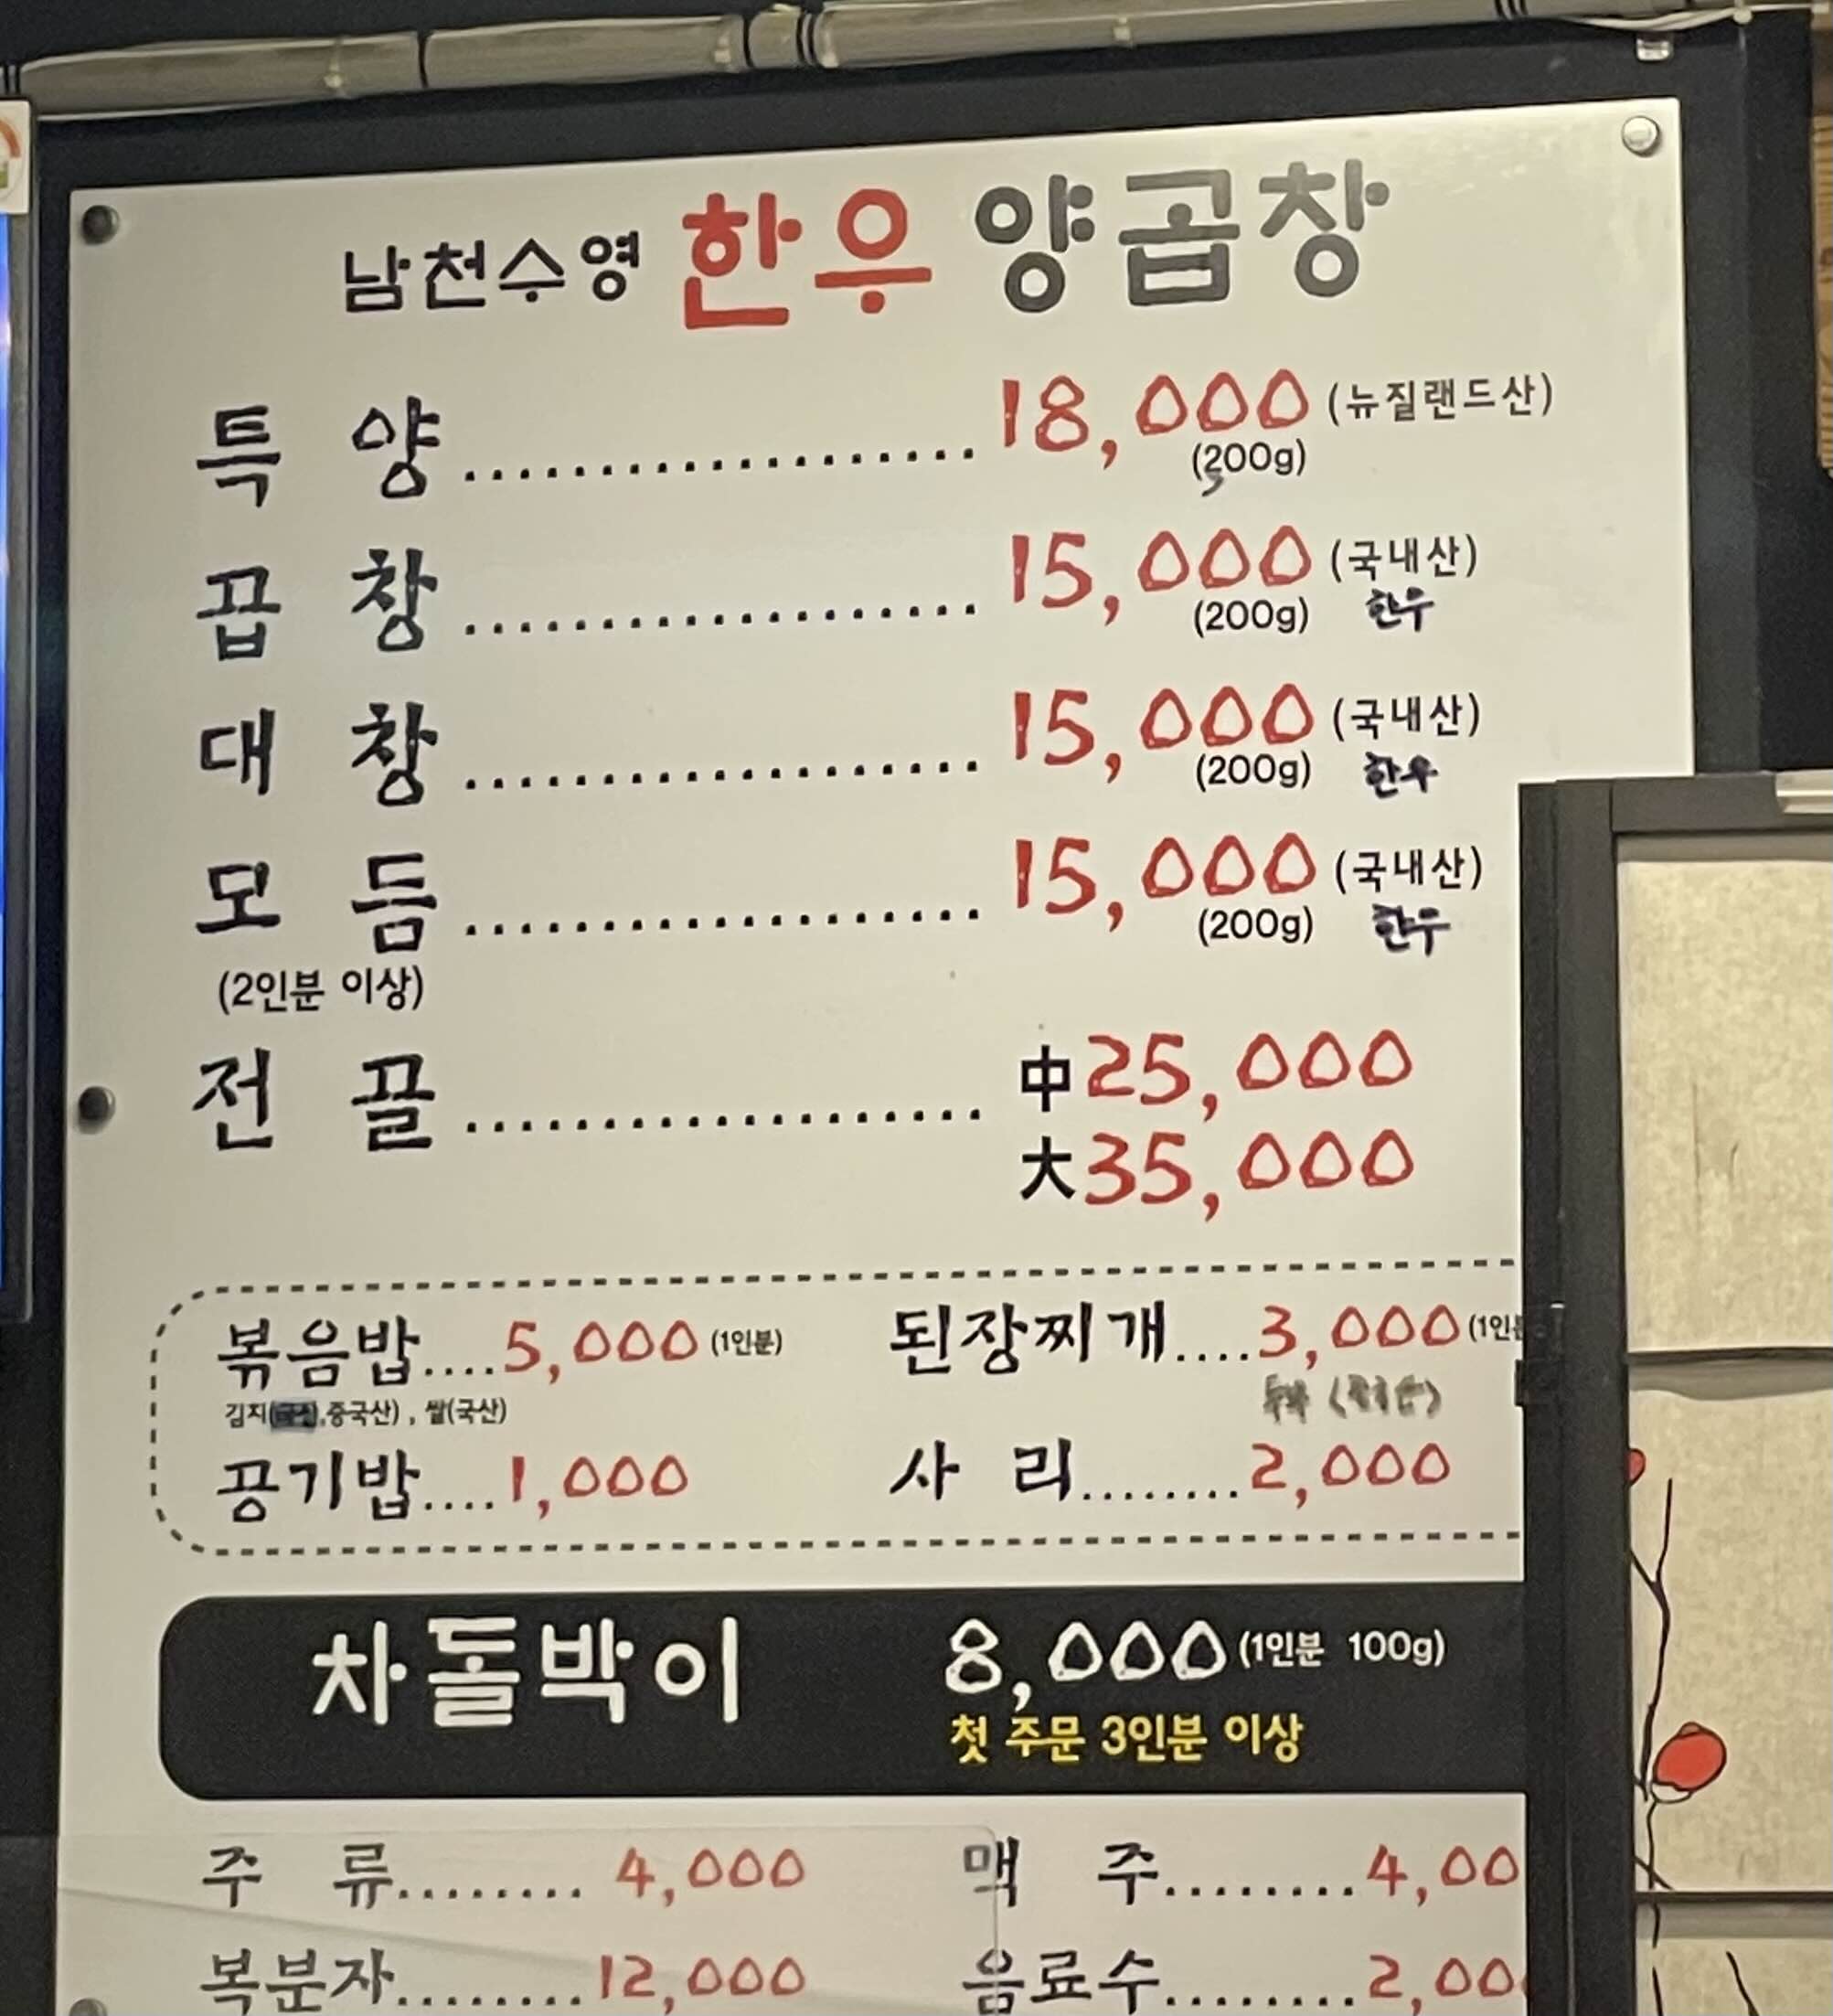 남천수영 한우 양곱창
특 양 ................... 18,000 (뉴질랜드산)
(200g)
곱 창 ................... 15,000 (국내산)
(200g) 한우
대 창 ................... 15,000 (국내산)
(200g) 한우
모 듬 ................... 15,000 (국내산)
(200g) 한우
(2인분 이상)
전 골 ................... 中 25,000
大 35,000
볶음밥....5,000 (1인분)
김치( ,중국산) , 쌀(국산)
공기밥....1,000
된장찌개....3,000 (1인
사 리........2,000
차돌박이 8,000 (1인분 100g)
첫 주문 3인분 이상
주 류........ 4,000
맥 주........4,00
복분자........12,000
음료수........2,00